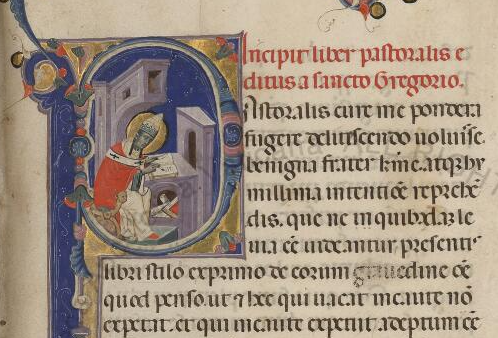 Incipit liber pastoralis e
ditus a sancto Gregorio.
Pastoralis cure me pondera
fugere delitescendo uoluisse.
benigna frater
intentiōe reprehē
dis. que ne in quibusdā le
uia eē uideantur presentis
libri stilo exprimo de eorum grauedine oē
quod penso. ut ⁊ hec qui uacat incaute nō
expetat. et qui incaute expetiit adeptum eē